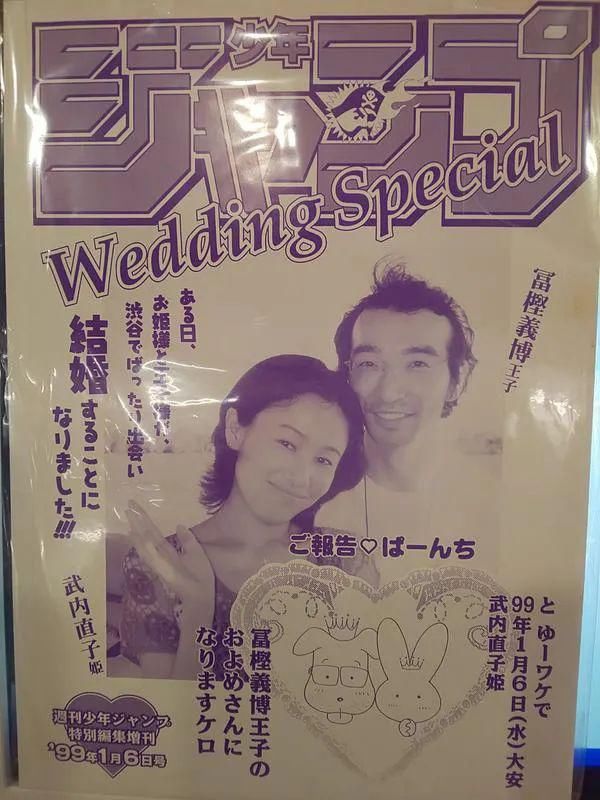 少年
ジャンプ
Wedding Special
冨樫義博王子
ある日、
お姫様と王子様が、
渋谷でばったり出会い
結婚することに
なりました!!!
武内直子姫
ご報告♡ぱーんち
と ゆーワケで
99年1月6日(水)大安
武内直子姫
冨樫義博王子の
およめさんに
なりますケロ
週刊少年ジャンプ
特別編集増刊
'99年1月6日号